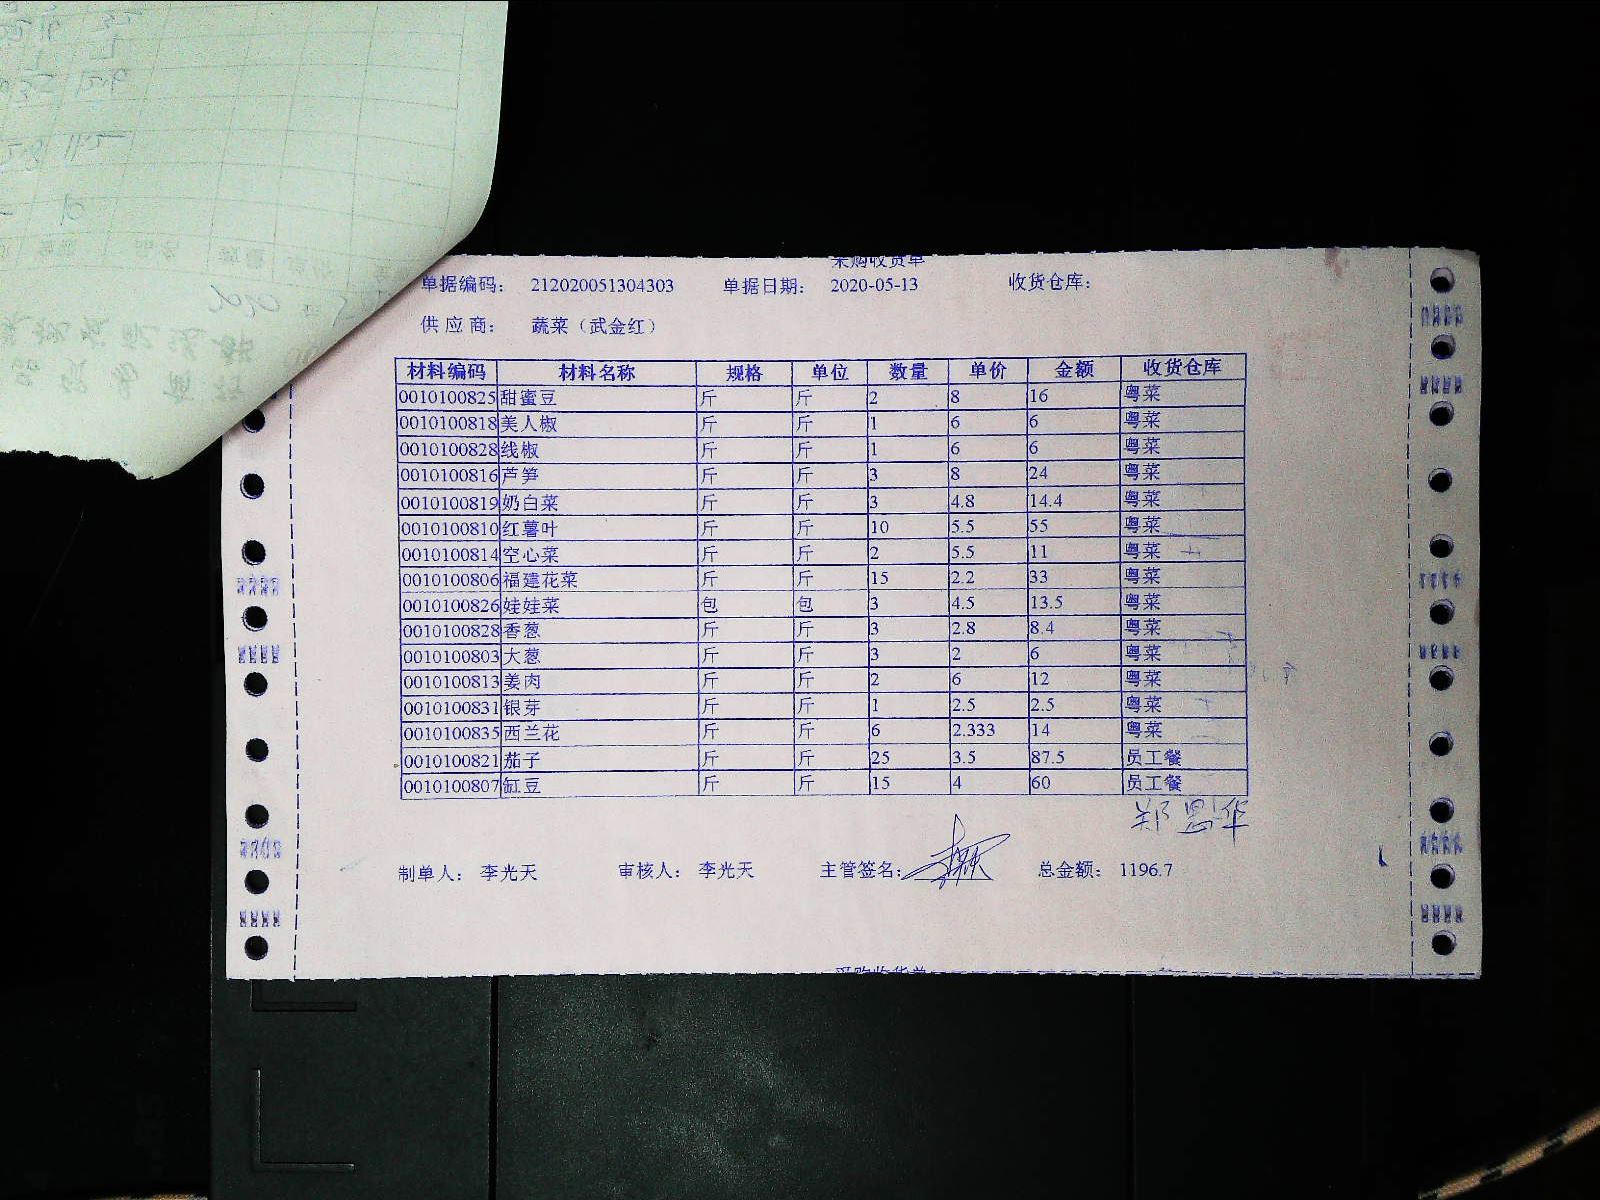 采购收货单
单据编码： 212020051304303 单据日期： 2020-05-13 收货仓库：
供应商： 蔬菜（武金红）
材料编码 材料名称 规格 单位 数量 单价 金额 收货仓库
0010100825 甜蜜豆 斤 斤 2 8 16 粤菜
0010100818 美人椒 斤 斤 1 6 6 粤菜
0010100828 线椒 斤 斤 1 6 6 粤菜
0010100816 芦笋 斤 斤 3 8 24 粤菜
0010100819 奶白菜 斤 斤 3 4.8 14.4 粤菜
0010100810 红薯叶 斤 斤 10 5.5 55 粤菜
0010100814 空心菜 斤 斤 2 5.5 11 粤菜
0010100806 福建花菜 斤 斤 15 2.2 33 粤菜
0010100826 娃娃菜 包 包 3 4.5 13.5 粤菜
0010100828 香葱 斤 斤 3 2.8 8.4 粤菜
0010100803 大葱 斤 斤 3 2 6 粤菜
0010100813 姜肉 斤 斤 2 6 12 粤菜
0010100831 银芽 斤 斤 1 2.5 2.5 粤菜
0010100835 西兰花 斤 斤 6 2.333 14 粤菜
0010100821 茄子 斤 斤 25 3.5 87.5 员工餐
0010100807 缸豆 斤 斤 15 4 60 员工餐
郑思华
制单人： 李光天 审核人： 李光天 主管签名： 总金额： 1196.7
采购收货单